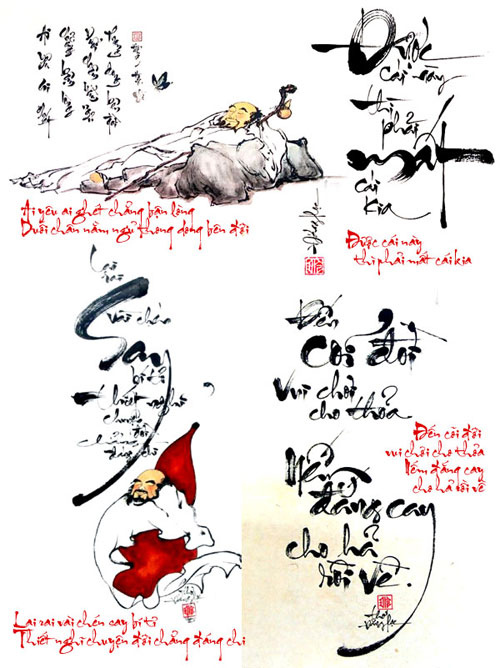 Được
cái này
thì phải
mất
cái
kia
Ai yêu ai ghét chẳng bận lòng
Duỗi chân nằm ngủ thong dong bên đời
Được cái này
thì phải mất cái kia
Lai
rai
vài chén
Say
bí tỉ
thiết nghĩ
chuyện
đời
chẳng
đáng chi
Đến
cõi đời
vui chơi
cho thỏa
Nếm
đắng cay
cho hả
rồi về.
Đến cõi đời
vui chơi cho thỏa
Nếm đắng cay
cho hả rồi về
Lai rai vài chén say bí tỉ
Thiết nghĩ chuyện đời chẳng đáng chi